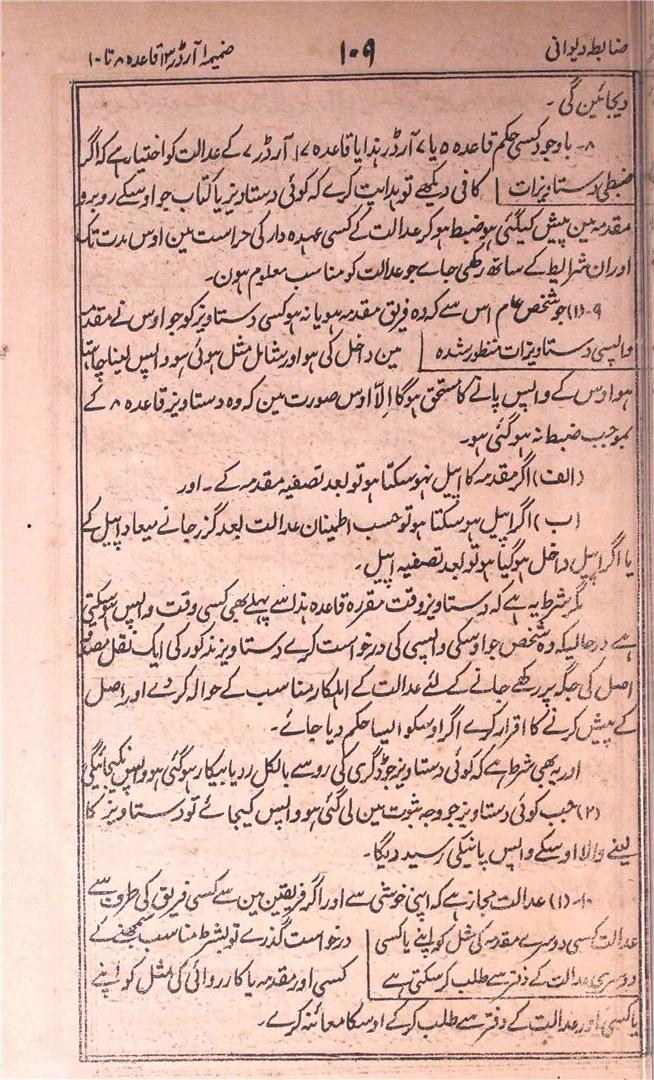 ضابطہ دیوانی
۱۰۹
ضمیمہ ا آرڈر ۱۳ قاعدہ ۸ تا ۱۰
دیجائین گی۔
۸۔ باوجود کسی حکم قاعدہ ۵ یا ۷ آرڈر ہذا یا قاعدہ ۱۷ آرڈر ۷ کے عدالت کو اختیار ہے کہ اگر
ضبطی دستاویزات
کافی وجہ دیکھے تو ہدایت کرے کہ کوئی دستاویز یا کتاب جو اوسکے روبرو
مقدمہ مین پیش کیگئی ہو ضبط ہو کر عدالت کے کسی عہدہ دار کی حراست مین اوس مدت تک
اور ان شرایط کے ساتھ رکھی جاے جو عدالت کو مناسب معلوم ہون۔
۹۔ (۱) جو شخص عام اس سے کہ وہ فریق مقدمہ ہو یا نہ ہو کسی دستاویز کو جو اوس نے مقدمہ
واپسی دستاویزات منظور شدہ
مین داخل کی ہو اور شامل مثل ہوئی ہو واپس لینا چاہتا
ہو اوس کے واپس پانے کا مستحق ہوگا اِلّا اوس صورت مین کہ وہ دستاویز قاعدہ ۸ کے
بموجب ضبط نہ ہوگئی ہو۔
(الف) اگر مقدمہ کا اپیل نہوسکتا ہو تو بعد تصفیہ مقدمہ کے۔ اور
(ب) اگر اپیل ہوسکتا ہو تو حسب اطینان عدالت بعد گزر جانے میعاد اپیل کے
یا اگر اپیل داخل ہوگیا ہو تو بعد تصفیہ اپیل۔
مگر شرط یہ ہے کہ دستاویز وقت مقررہ قاعدہ ہذا سے پہلے بھی کسی وقت واپس ہوسکتی
ہے درحالیکہ وہ شخص جو اوسکی واپسی کی درخواست کرے دستاویز مذکور کی ایک نقل مصدقہ
اصل کی جگہ پر رکھے جانے کے لئے عدالت کے اہلکار مناسب کے حوالہ کردے اور اصل
کے پیش کرنے کا اقرار کرے اگر اوسکو ایسا حکم دیا جائے۔
اور یہ بھی شرط ہے کہ کوئی دستاویز جو ڈگری کی رو سے بالکل رد یا بیکار ہوگئی ہو واپس نکیجائیگی
(۲) جب کوئی دستاویز جو وجہ ثبوت مین لی گئی ہو واپس کیجائے تو دستاویز کا
لینے والا اوسکے واپس پانیکی رسید دیگا۔
۱۰۔ (۱) عدالت مجاز ہے کہ اپنی خوشی سے اور اگر فریقین مین سے کسی فریق کی طرف سے
عدالت کسی دوسرے مقدمہ کی مثل کو اپنے یا کسی
درخواست گذرے تو بشرط مناسب سمجھنے کے
دوسری عدالت کے دفتر سے طلب کرسکتی ہے
کسی اور مقدمہ یا کارروائی کی مثل کو اپنے
یا کسی اور عدالت کے دفتر سے طلب کرکے اوسکا معائنہ کرے۔